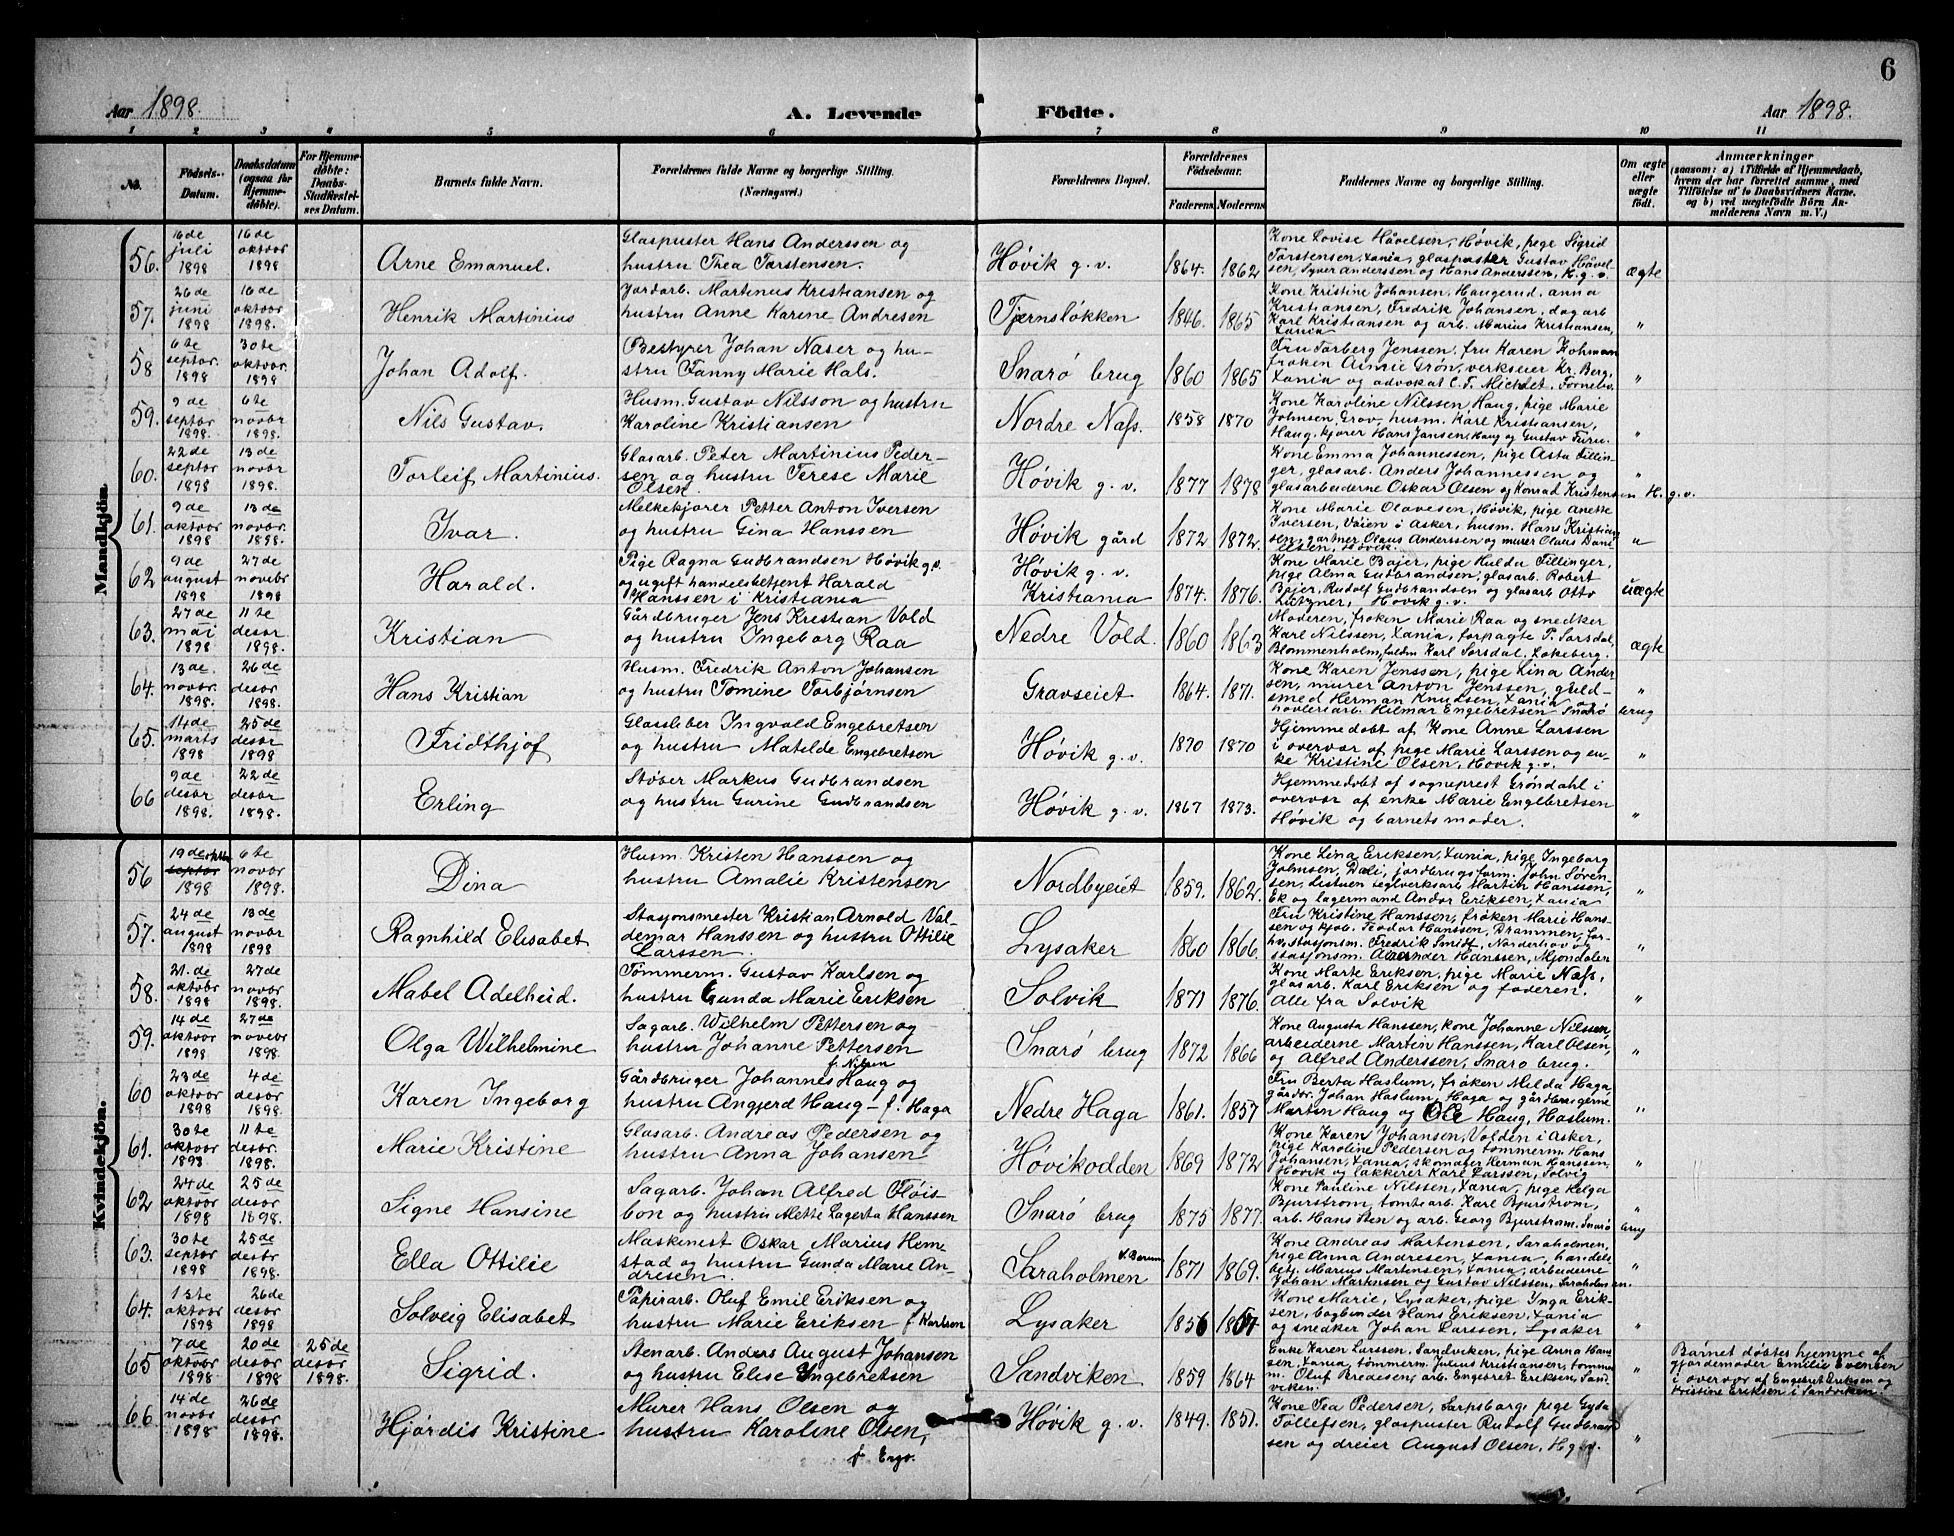 6
Aar 1898.
A. Levende Födte.
Aar 1898.
1 2 3 4 5 6 7 8 9 10 11
No.
Födsels-Datum.
Daabsdatum (ogsaa for Hjemme-döbte).
For Hjemme-döbte: Daabs-Stadfæstel-ses Datum.
Barnets fulde Navn.
Forældrenes fulde Navne og borgerlige Stilling. (Næringsvei.)
Forældrenes Bopæl.
Forældrenes Födselsaar.
Faderens. Moderens.
Faddernes Navne og borgerlige Stilling.
Om ægte eller uægte födt.
Anmærkninger
(saasom: a) i Tilfælde af Hjemmedaab, hvem der har forrettet samme, med Tilföielse af to Daabsvidners Navne, og b) ved uægtefödte Börn An-melderens Navn m. V.)
Mandkjön.
56. 16de juli 1898 16de oktobr 1898 Arne Emanuel.
Glaspuster Hans Anderssen og
hustru Thea Torstensen.
Høvik g.v. 1864. 1862
Kone Lovise Håvelsen, Høvik, pige Sigrid
Torstensen, Xania, glaspuster Gustav Håvel-
sen, Syver Anderssen og Hans Anderssen, H.g.v.
ægte
57. 26de juni 1898 16de oktobr 1898. Henrik Martinius
Jordarb. Martinus Kristiansen og
hustru Anne Karine Andresen
Tjernsløkken 1846. 1865
Kone Kristine Johansen, Haugerud, anna
Kristiansen, Fredrik Johansen, dagarb
Karl Kristiansen og arb. Marius Kristiansen,
Xania
"
58 6te septbr. 1898 30te oktobr. 1898 Johan Adolf.
Bestyrer Johan Naser og hu-
stru Fanny Marie Hals.
Snarø brug 1860 1865
Fru Torberg Jenssen, fru Karen
frøken Aimée Grøn, verkseier Kr. Berg,
Xania og advokat C.F. Michelet, Fornebo.
"
59. 9de septbr 1898. 6te novbr 1898. Nils Gustav.
Husm. Gustav Nilsson og hustru
Karoline Kristiansen
Nordre Næss. 1858 1870
Kone Karoline Nilssen, Haug, pige Marie
Johnsen, Grav, husm. Karl Kristiansen,
Haug, kjører Hans Jansen, Haug og Gustav Furu.
"
60. 22de septbr 1898 13de novbr 1898. Torleif Martinius.
Glasarb. Peter Martinius Peder-
sen og hustru Terese Marie
Olsen
Høvik g.v. 1877 1878
Kone Emma Johannessen, pige Asta Tillin-
ger, glasarb. Anders Johannessen og
glasarbeiderne Oskar Olsen og Konrad Kristensen H.g.v.
"
61. 9de oktobr 1898 13de novbr. 1898 Ivar.
Melkekjører Petter Anton Iversen
og hustru Gina Hanssen
Høvik gård 1872 1872.
Kone Marie Olavesen, Høvik, pige Anette
Iversen, Våien i Asker, husm. Hans Kristian-
sen, gartner Olaus Anderssen og murer Olaus Dani-
elsen, Høvik.
"
62 9de august 1898 27de novbr 1898 Harald.
Pige Ragna Gudbrandsen Høvik g.v.
og ugift handelsbetjent Harald
Hanssen i Kristiania
Høvik g.v.
Kristiania 1874. 1876.
Kone Marie Bajer, pige Hulda Tillinger,
pige Alma Gudbrandsen, glasarb. Robert
Bajer, Rudolf Gudbrandsen og glasarb Otto
Lutzner, Høvik g.v.
uægte
63. 27de mai 1898 11te desbr 1898. Kristian
Gårdbruger Jens Kristian Vold
og hustru Ingeborg Raa
Nedre Vold. 1860 1863
Moderen, frøken Marie Raa og snedker
Karl Nilssen, Xania, forpagte P. Sørsdal,
Blommenholm, Karl Sørsdal. Løkeberg.
ægte
64. 13de novbr. 1898 26de desbr 1898. Hans Kristian
Husm. Fredrik Anton Johansen
og hustru Tomine Torbjørnsen
Gravseiet 1864. 1871.
Kone Karen Jenssen, pige Lina Ander-
sen, murer Anton Jenssen, guld-
smed Herman Knudsen, Xania og
høvleriarb. Hilmar Engebretsen Snarø brug
"
65. 14de marts 1898 25de desbr 1898 Fridthjof
Glassleber Ingvald Engebretsen
og hustru Matilde Engebretsen
Høvik g.v. 1870 1870
Hjemmedøbt af Kone Anne Larssen
i overvær af pige Marie Larssen og en-
ke Kristine Olsen, Høvik g.v.
"
66 9de desbr 1898. 22de desbr 1898. Erling
Støber Markus Gudbrandsen
og hustru Gurine Gudbrandsen
Høvik g.v. 1867 1873.
Hjemmedøbt af sogneprest Grøndahl i
overvær af enke Marie Engebretsen
Høvik og barnets moder.
"
Kvindekjön.
56 19de septbr 1898 6te novbr 1898. Dina
Husm. Kristen Hanssen og
hustru Amalie Kristensen
Nordbyeiet 1859. 1862.
Kone Lina Eriksen, Xania, pige Ingeborg
Johnsen, Dæli, jordbrugsform. John Søren-
sen, Listuen teglverksarb Martin Hanssen,
Ek og lagermand Andor Eriksen, Xania
"
57. 24de august 1898 13de novbr 1898 Ragnhild Elisabet
Stasjonsmester Kristian Arnold Val-
demar Hanssen og hustru Ottilie
Larssen.
Lysaker 1860 1866.
Fru Kristine Hanssen, frøken Marie Hans-
sen og kjøb. Teodor Hanssen, Drammen, for-
hv. stasjonsm. Fredrik Smidt, Norderhov og
stasjonsm. Hanssen, Mjøndalen
"
58. 21.de oktobr 1898 27de novbr 1898 Mabel Adelheid.
Tømmerm. Gustav Karlsen og
hustru Gunda Marie Eriksen
Solvik 1871 1876.
Kone Marte Eriksen, pige Marie Næss,
glasarb. Karl Eriksen og faderen.
Alle fra Solvik
"
59. 14de oktobr 1898 27de novebr 1898. Olga Wilhelmine
Sagarb. Wilhelm Pettersen og
hustru Johanne Pettersen
f. Nilsen
Snarø brug 1872 1866
Kone Augusta Hanssen, kone Johanne Nilssen,
arbeiderne Martin Hanssen, Karl Olsen,
og Alfred Anderssen, Snarø brug.
"
60 23de oktobr 1898 4de desbr 1898. Karen Ingeborg
Gårdbruger Johannes Haug og
hustru Angjerd Haug - f. Haga
Nedre Haga 1861. 1857
Fru Berta Haslum, frøken Milda Haga
gårdbr. Johan Haslum, Haga og gårdbrugerne
Martin Haug og Ole Haug, Haslum.
"
61. 30te oktobr 1898 11te desbr. 1898. Marie Kristine
Glasarb. Andreas Pedersen og
hustru Anna Johansen
Høvikodden 1869 1872
Kone Karen Johansen, Volden i Asker,
pige Karoline Pedersen og tømmerm. Hans
Johansen, Xania, skomager Herman Hanssen,
Høvik og lakkerer Karl Larssen, Solvig
"
62 24de oktobr 1898 25de desbr 1898. Signe Hansine
Sagarb. Johan Alfred Fløis-
bon og hustru Alette Lagerta Hanssen
Snarø brug 1875 1877.
Kone Pauline Nilssen, Xania, pige Helga
Bjurstrøm, tomtearb. Karl Bjurstrøm,
arb. Hans Sten og arb. Georg Bjurstrøm. Snarø brug
"
63. 30te septbr 1898 25de desbr 1898. Ella Ottilie
Maskinist Oskar Marius Hem-
stad og hustru Gunda Marie An-
dresen.
Saraholmen V. Bærum 1871 1869.
Kone Andreas Martensen, Saraholmen,
pige Anna Andresen, Xania, handels-
betj. Marius Martensen, Xania, arbeiderne
Johan Martensen og Gustav Nilssen, Saraholmen.
"
64. 1ste oktobr 1898 26de desbr 1898 Solveig Elisabet
Papirarb. Oluf Emil Eriksen og
hustru Marie Eriksen f. Karlsen
Lysaker 1856 1857
Kone Marie, Lysaker, pige Inga Erik-
sen, bogbinder Hans Eriksen, Xania
og snedker Johan Larssen, Lysaker
"
65 7de oktobr 1898 20de desbr 1898 25de desbr 1898. Sigrid.
Stenarb. Anders August Johansen
og hustru Elise Yngebretsen
Sandviken 1859 1864
Enke Karen Larssen, Sandviken, pige Anna Hans-
sen, Xania, tømmerm. Julius Kristiansen, tømmer
m. Oluf Bredesen, arb. Engebret Eriksen, Sand-
viken.
"
Barnet døbtes hjemme af
gjordemoder Emilie Evensen
i overvær af Engebret Eriksen og
Kristine Eriksen i Sandviken.
66. 14de novbr 1898 26de desbr 1898. Hjørdis Kristine
Murer Hans Olsen og
hustru Karoline Olsen,
f. Ergo.
Høvik g.v. 1849. 1851.
Kone Tea Pedersen, Sarpsborg, pige Gyda
Tollefsen, glaspuster Rudolf Gudbrand
sen og dreier August Olsen, H.g.v.
"